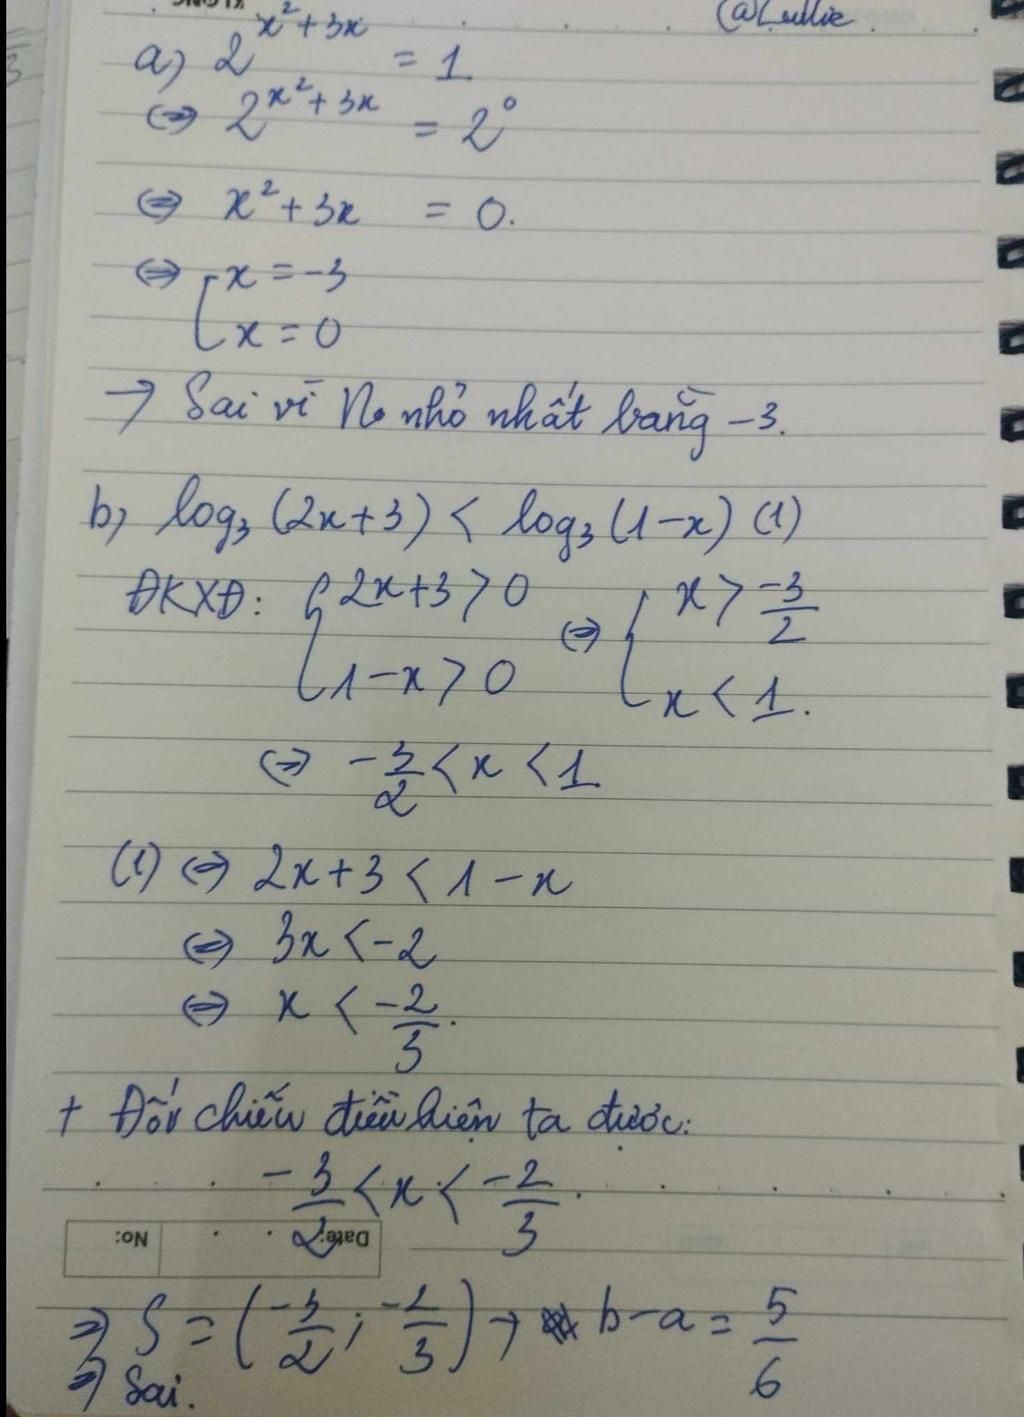 KLONG
@Lullie
a) 2^{x²+3x} = 1
⇔ 2^{x²+3x} = 2⁰
⇔ x²+3x = 0.
⇔ [x = -3
x = 0
→ Sai vì No nhỏ nhất bằng -3.
b) log₃(2x+3) < log₃(1-x) (1)
ĐKXĐ: {2x+3>0 ⇔ {x > -3/2
1-x>0 x < 1.
⇔ -3/2 < x < 1
(1) ⇔ 2x+3 < 1-x
⇔ 3x < -2
⇔ x < -2/3.
+ Đối chiếu điều kiện ta được:
-3/2 < x < -2/3.
No: Date:
⇒ S = (-3/2; -2/3) → b-a = 5/6
⇒ Sai.